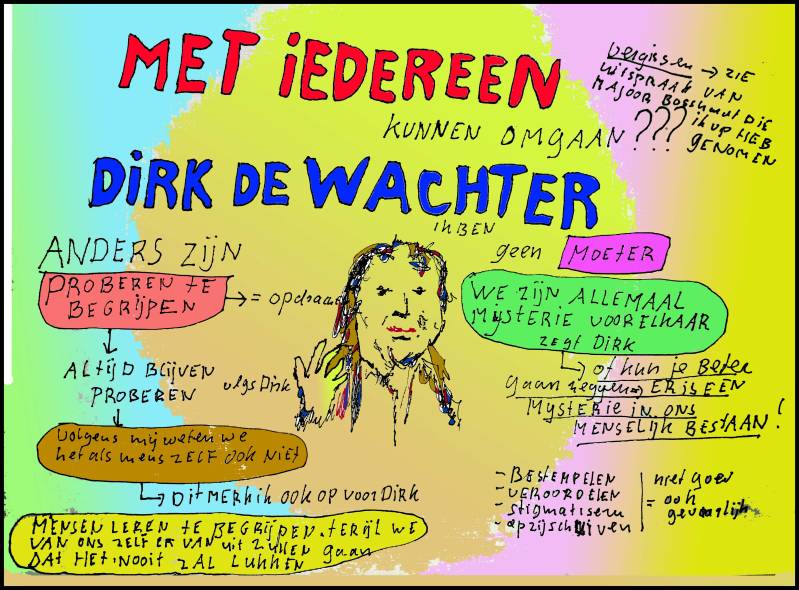 MET iEDEREEN
KUNNEN OMGAAN ???
Vergissen → ZIE
UITSPRAAK VAN
MAJOOR BOSSHARDT DIE
ik op HEB
GENOMEN
DiRK DE WACHTER
ik BEN
geen MOETER
ANDERS ZIJN
PROBEREN TE
BEGRIJPEN
→ = opdraan
WE ZIJN ALLEMAAL
MYSTERIE VOOR ELKAAR
ZEGT DIRK
ALTIJD BLIJVEN
PROBEREN
vlgs Dirk
of kun je Beter
gaan zeggen → ER IS EEN
MYSTERIE IN ONS
MENSELIJK BESTAAN !
Volgens mij weten we
het als mens ZELF OOK NIET
DIT MERK ik OOK OP VOOR Dirk
- BESTEMPELEN
- VEROORDELEN
- stigmatiseren
- opzij schuiven
niet goed
= ook
gevaarlijk
MENSEN LEREN TE BEGRIJPEN. TERIJL WE
VAN ONS ZELF ER VAN UIT ZULLEN gaan
DAT HET NOOIT ZAL LUKKEN